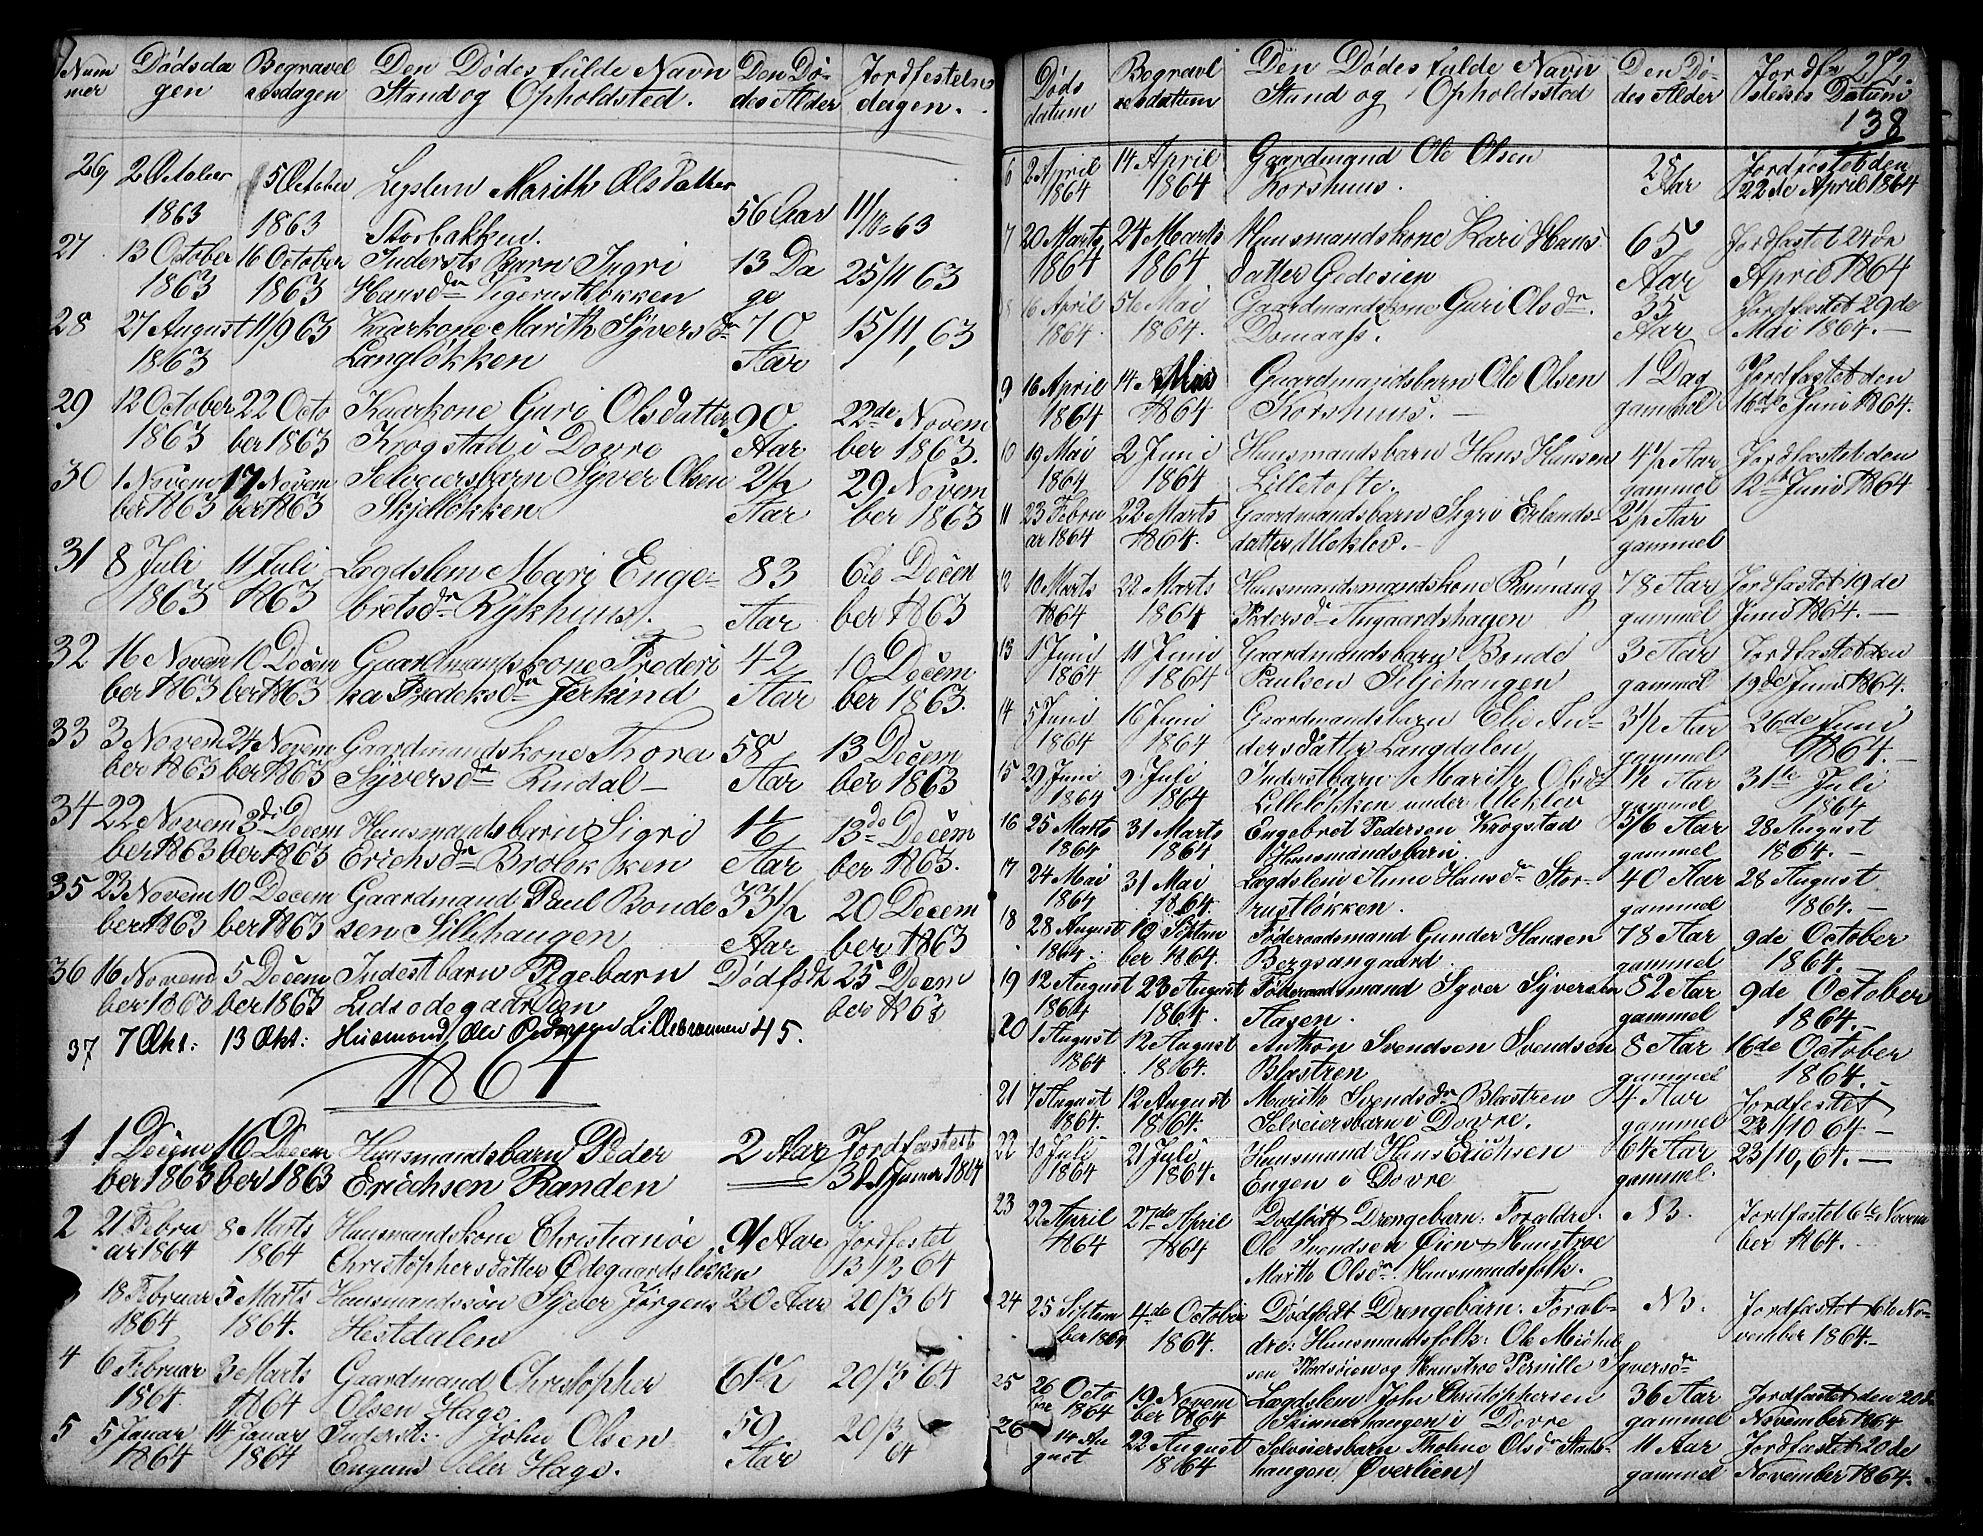 Num mer
Dødsda gen
Begravel sesdagen
Den Dødes fulde Navn Stand og Opholdsted.
Den Dø- des Alder
Jordfestelses dagen.
26 2 October 1863 5 October 1863 Legslem Marith Olsdatter Storbakken. 56 Aar 11/10 63
27 13 October 1863 16 October 1863 Inderste Barn Ingri Hansdr Sigerustløkken 13 Da ge 25/11 63
28 27 August 1863 11/9 63 Kaarkone Marith Syversdr Langløkken 70 Aar 15/11, 63
29 12 October 1863 22 Octo ber 1863 Kaarkone Guri Olsdatter Krogstad i Dovre 90 Aar 22de Novem ber 1863.
30 1 Novem ber 1863 17 Novem ber 1863 Selveiersbarn Syver Olsen Skjelløkken 2 1/2 Aar 29 Novem ber 1863
31 8 Juli 1863 11 Juli 1863 Lægdslem Mari Enge- bretsdr Rykhuus. 83 Aar 6te Decem ber 1863
32 16 Novem ber 1863 10 Decem ber 1863 Gaardmandskone Frederi ka Fredeksdr Jerkind 42 Aar 10 Decem ber 1863.
33 3 Novem ber 1863 24 Novem ber 1863 Gaardmandskone Thora Syversdr Rindal - 58 Aar 13 Decem ber 1863
34 22 Novem ber 1863 3de Decem ber 1863 Huusmandsbarn Sigri Erichsdr Broløkken 1/6 Aar 13de Decem ber 1863.
35 23 Novem ber 1863 10 Decem ber 1863 Gaardmand Paul Bonde sen Sillihaugen 33 1/2 Aar 20 Decem ber 1863
36 16 Novem ber 1863 5 Decem ber 1863 Indestbarn Pigebarn Lidsødegaarden Dødfødt 25 Decem ber 1863
37 7 Okt: 13 Okt: Husmand Ole Pedersen Lillebrænnen 45.
1864
1 1 Decem ber 1863 16 Decem ber 1863 Huusmandsbarn Peder Erichsen Randen 2 Aar Jordfæstet 31 Januar 1864
2 21 Febru ar 1864 8 Marts 1864 Huusmandskone Christianøe Christophersdatter Ødegaardsløkken Aar Jordfestet 13/3 64
18 Februar 1864 5 Marts 1864. Huusmandssøn Syver Jørgens Hestdalen 20 Aar 20/3 64
4 6 Februar 1864. 3 Marts 1864 Gaardmand Christopher Olsen Hage 61 1/2 20/3 64
5 5 Januar 1864 14 Januar 1864 Inderst: John Olsen Engum eller Hage. 59 Aar 20/3 64
Døds datum
Begravel sesdattum
Den Dødes fulde Navn Stand og Opholdssted
Den Dø- des Alder
Jordfæ stelses Datum
282.
138
6 2 April 1864 14 April 1864 Gaardmand Ole Olsen Korshuus. 28 Aar Jordfæstet den 22de April 1864
7 20 Marts 1864 24 Marts 1864 Huusmandskone Kari Hans datter Gedesien 65 Aar Jordfæstet 24de April 1864
8 16 April 1864. 5te Mai 1864. Gaardmandskone Guri Olsdr. Domaass. 35 Aar Jordfæstet 29de Mai 1864. -
9 16 April 1864 14 Mai 1864 Gaardmandsbarn Ole Olsen Korshuus. - 1 Dag gammel Jordfæstet den 16de Juni 1864.
10 19 Mai 1864 2 Juni 1864 Huusmandsbarn Hans Hansen Lilletofte. 4 1/2 Aar gammel Jordfæstet den 12te Juni 1864
11 23 Febru ar 1864 22 Marts 1864. Gaardmandsbarn Sigri Erlands- datter Uleklev. - 2 1/2 Aar gammel
12 10 Marts 1864 22 Marts 1864 Huusmandsmandskone Rønnaug Pedersdr Angaardshagen 78 Aar gammel Jordfæstet 19de Juni 1864. -
13 1 Juni 1864 11 Juni 1864 Gaardmandsbarn Bonde Paulsen Siljehaugen 3 Aar gammel Jordfæstet den 19de Juni 1864.
14 5 Juni 1864 16 Juni 1864 Gaardmandsbarn Eli An- dersdatter Langdalen 3 1/2 Aar gammel 26de Juni 1864. -
15 29 Juni 1864 9 Juli 1864 Inderstbarn Marith Olsdr Lilleløkken under Uleklev 1/2 Aar gammel 31te Juli 1864
16 25 Marts 1864 31 Marts 1864 Engebret Pedersen Krogstad Huusmandsbarn 5/6 Aar gammel 28 August 1864. -
17 24 Mai 1864 31 Mai 1864. Lægdslem Anne Hansdr Stor- rustløkken. 40 Aar gammel 28 August 1864. -
18 28 August 1864. 10 Septem ber 1864. Føderaadsmand Gunder Hansen Bergsangaard. 78 Aar gammel 9de October 1864. -
19 12 August 1864 23 August 1864. Føderaadsmand Syver Syversen Aasen. 82 Aar gammel 9de October 1864. -
20 1 August 1864 12 August 1864. Anthon Svendsen Svendsen Blæstren 8 Aar gammel 16de October 1864. -
21 7 August 1864. 12 August 1864. Marith Svendsdr Blæstren Selveiersbarn i Dovre. 4 Aar gammel Jordfestet 23/10 64 -
22 10 Juli 1864 21 Juli 1864. Huusmand Hans Erichsen Engen i Dovre 64 Aar gammel. 23/10, 64. -
23 22 April 1864 27de April 1864 Dødfødt Drengebarn: Forældre: Ole Svendsen Øien & Hunstroe Marith Olsdr. Huusmandsfolk. NB. Jordfæstet 6te Novem ber 1864.
24 25 Septem ber 1864 4de October 1864. Dødfødt Drengebarn: Foræl- dre: Huusmandsfolk: Ole Michel sen og Hunstroe Pernille Syversdr NB. Jordfæstet 6te No- vember 1864. -
25 26 Octo ber 1864 19 Novem ber 1864 Lægdslem John Christophersen Skinnerhaugen i Dovre 36 Aar gammel Jordfæstet den 20de November 1864
26 14 Au gust 22 August 1864 Selveiersbarn Tholine Olsdr Stads- haugen (Øverlien) 11 Aar gammel Jordfæstet 20de November 1864.